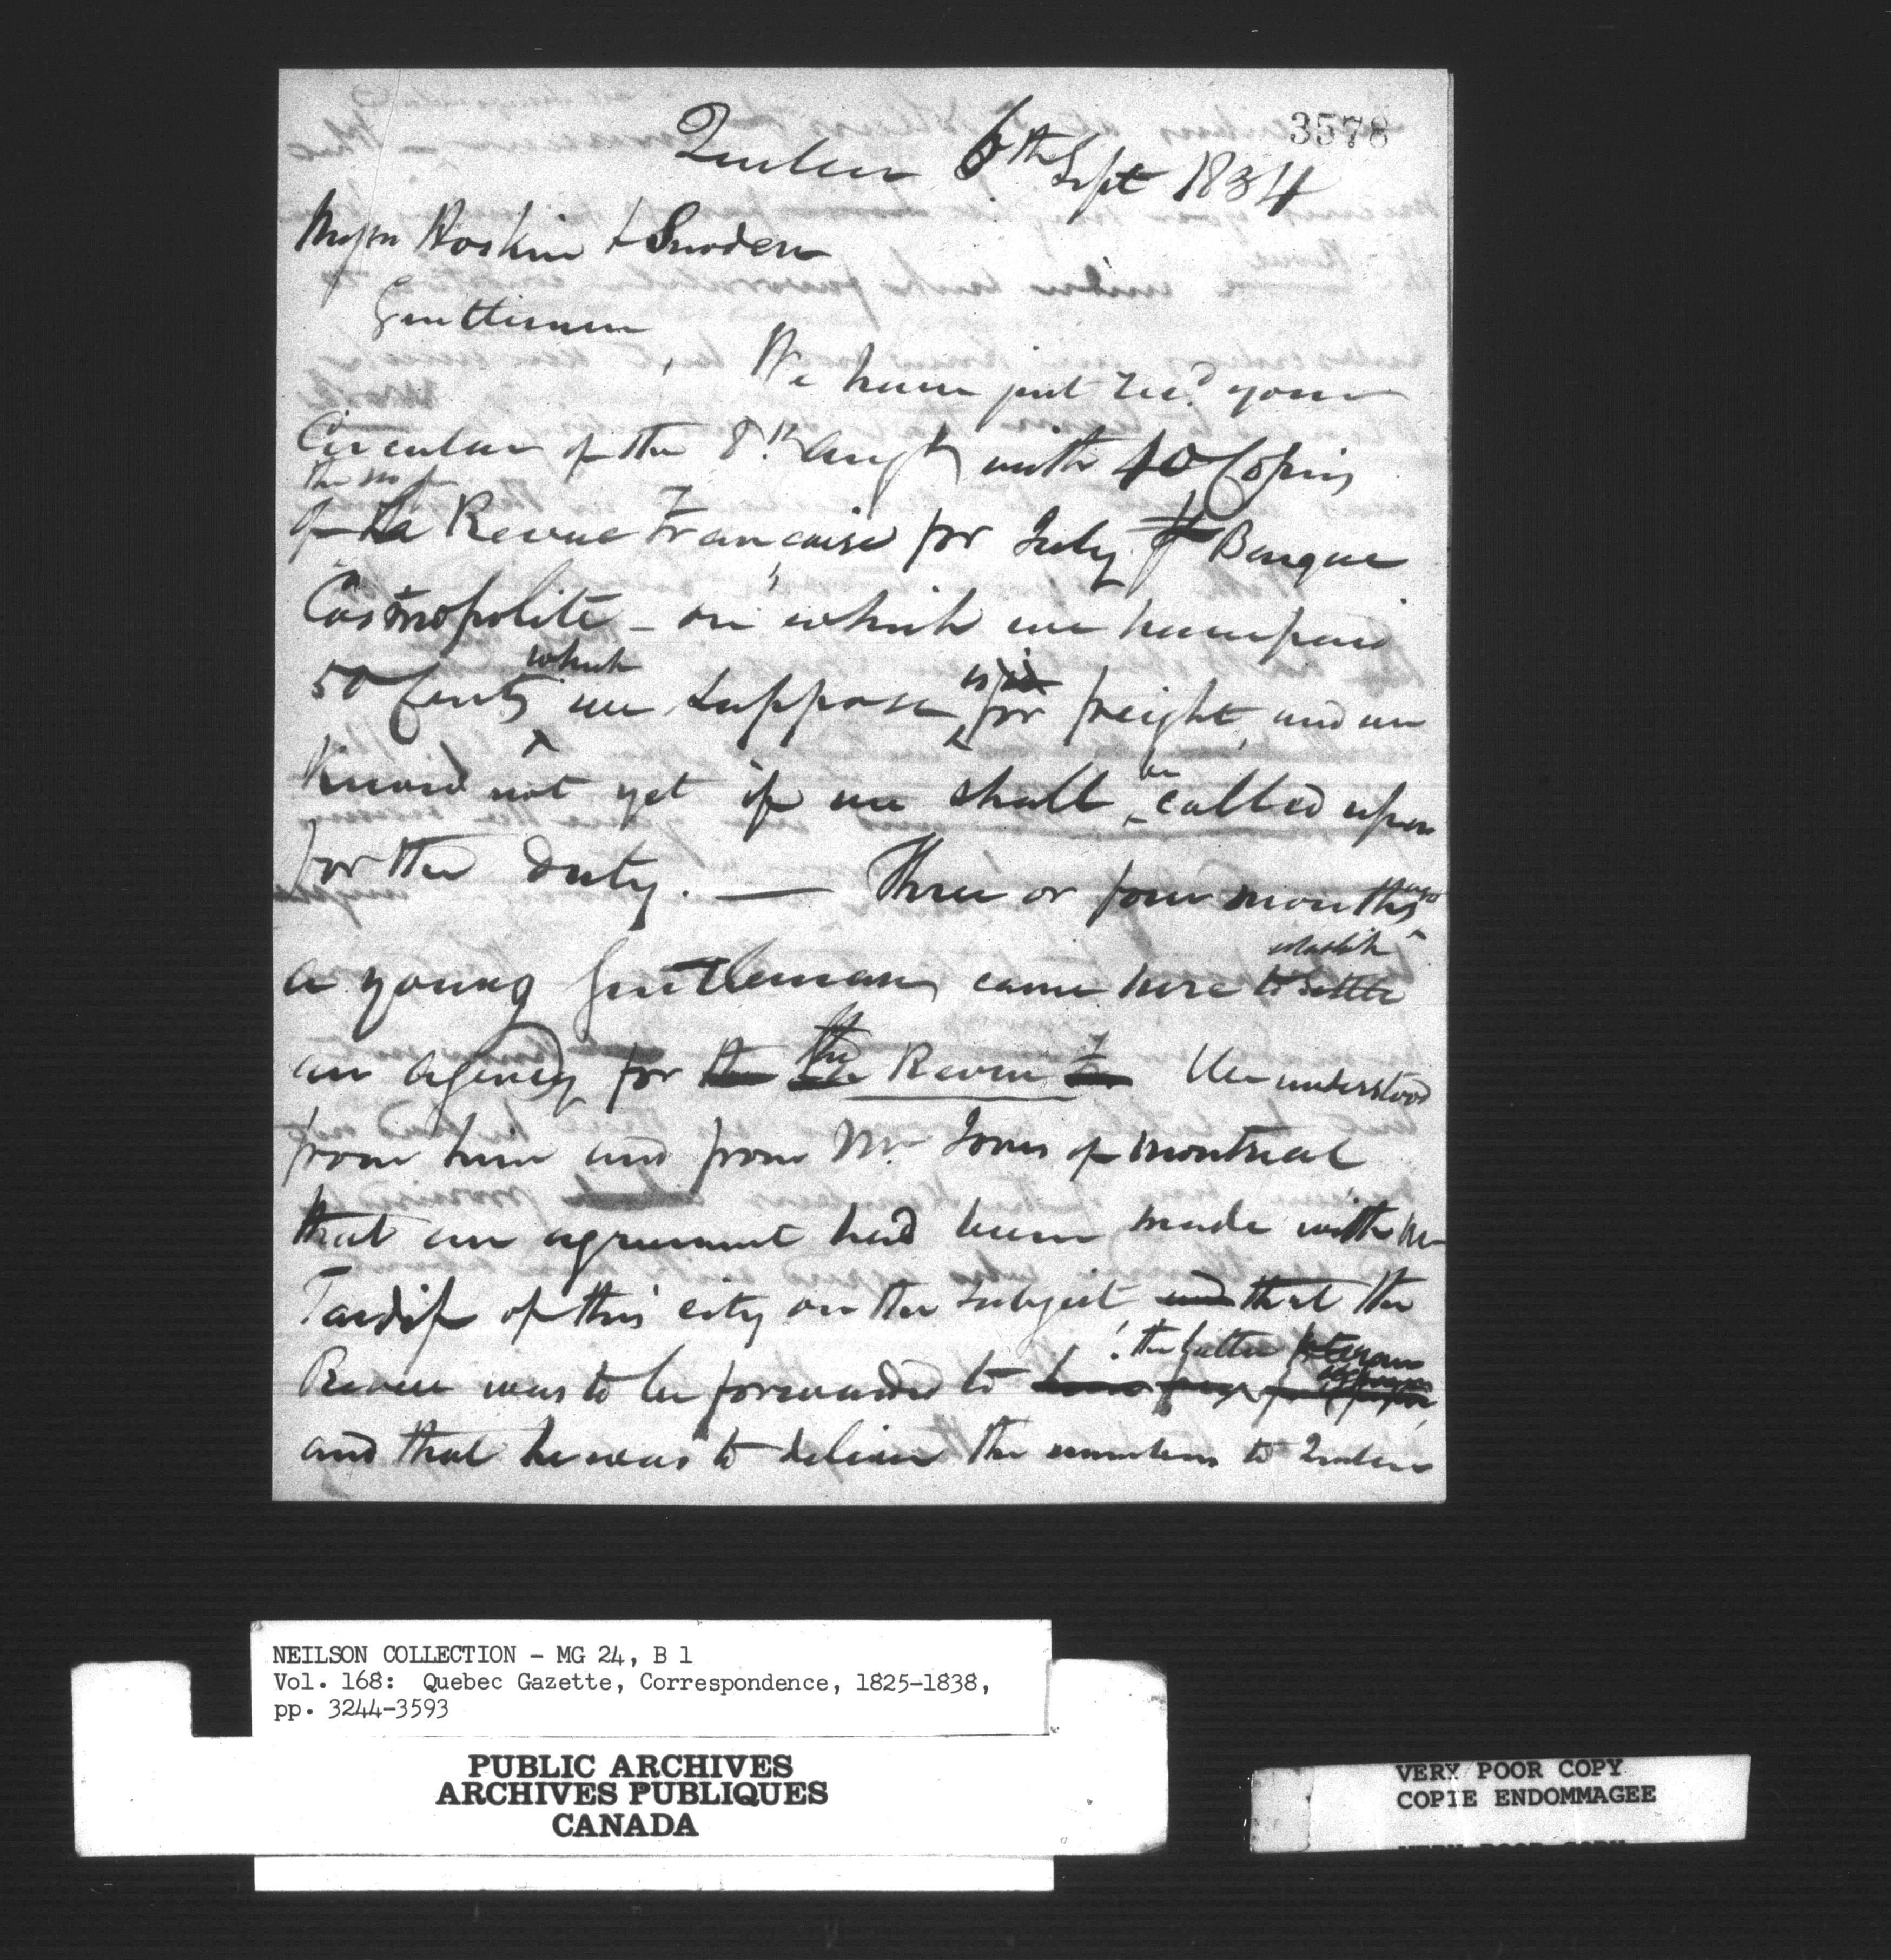 3578
Quebec 6th Sept 1834
Messrs Hoskin & Snoden
Gentlemen
We have just recd your
Circular of the 8th Augt with 40 Copies
the no of
of La Revue Française for July Banque
Cosmopolite - on which we have paid
50 Cents which we suppose is for freight, and we
know not yet if we shall be called upon
for the duty. — Three or four months ago
establish
a young Gentleman came here to settle
an agency for the the Revue We understood
from him and from Mr Jones of Montreal
that an agreement had been made with Mr
Tardif of this city on the subject and that the
the latter
Revue was to be forwarded to
and that he was to deliver the numbers to Quebec
NEILSON COLLECTION - MG 24, B 1
Vol. 168: Quebec Gazette, Correspondence, 1825-1838,
pp. 3244-3593
PUBLIC ARCHIVES
ARCHIVES PUBLIQUES
CANADA
VERY POOR COPY
COPIE ENDOMMAGEE